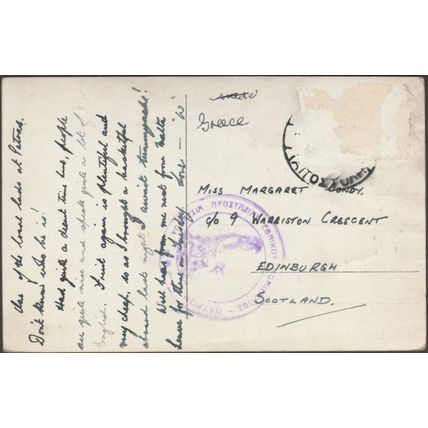 One of the local lads at Patras.
Don't know who he is!
Had quite a decent time here, people
are quite nice and speak quite a lot of
English. Fruit again is plentiful and
very cheap, so as I managed a bathful
aboard last night I await
Will hear from me next from Malta
leave for there on Sunday. Love - W
Greece
MISS MARGARET
c/o 9 WARRISTON CRESCENT
EDINBURGH
SCOTLAND.